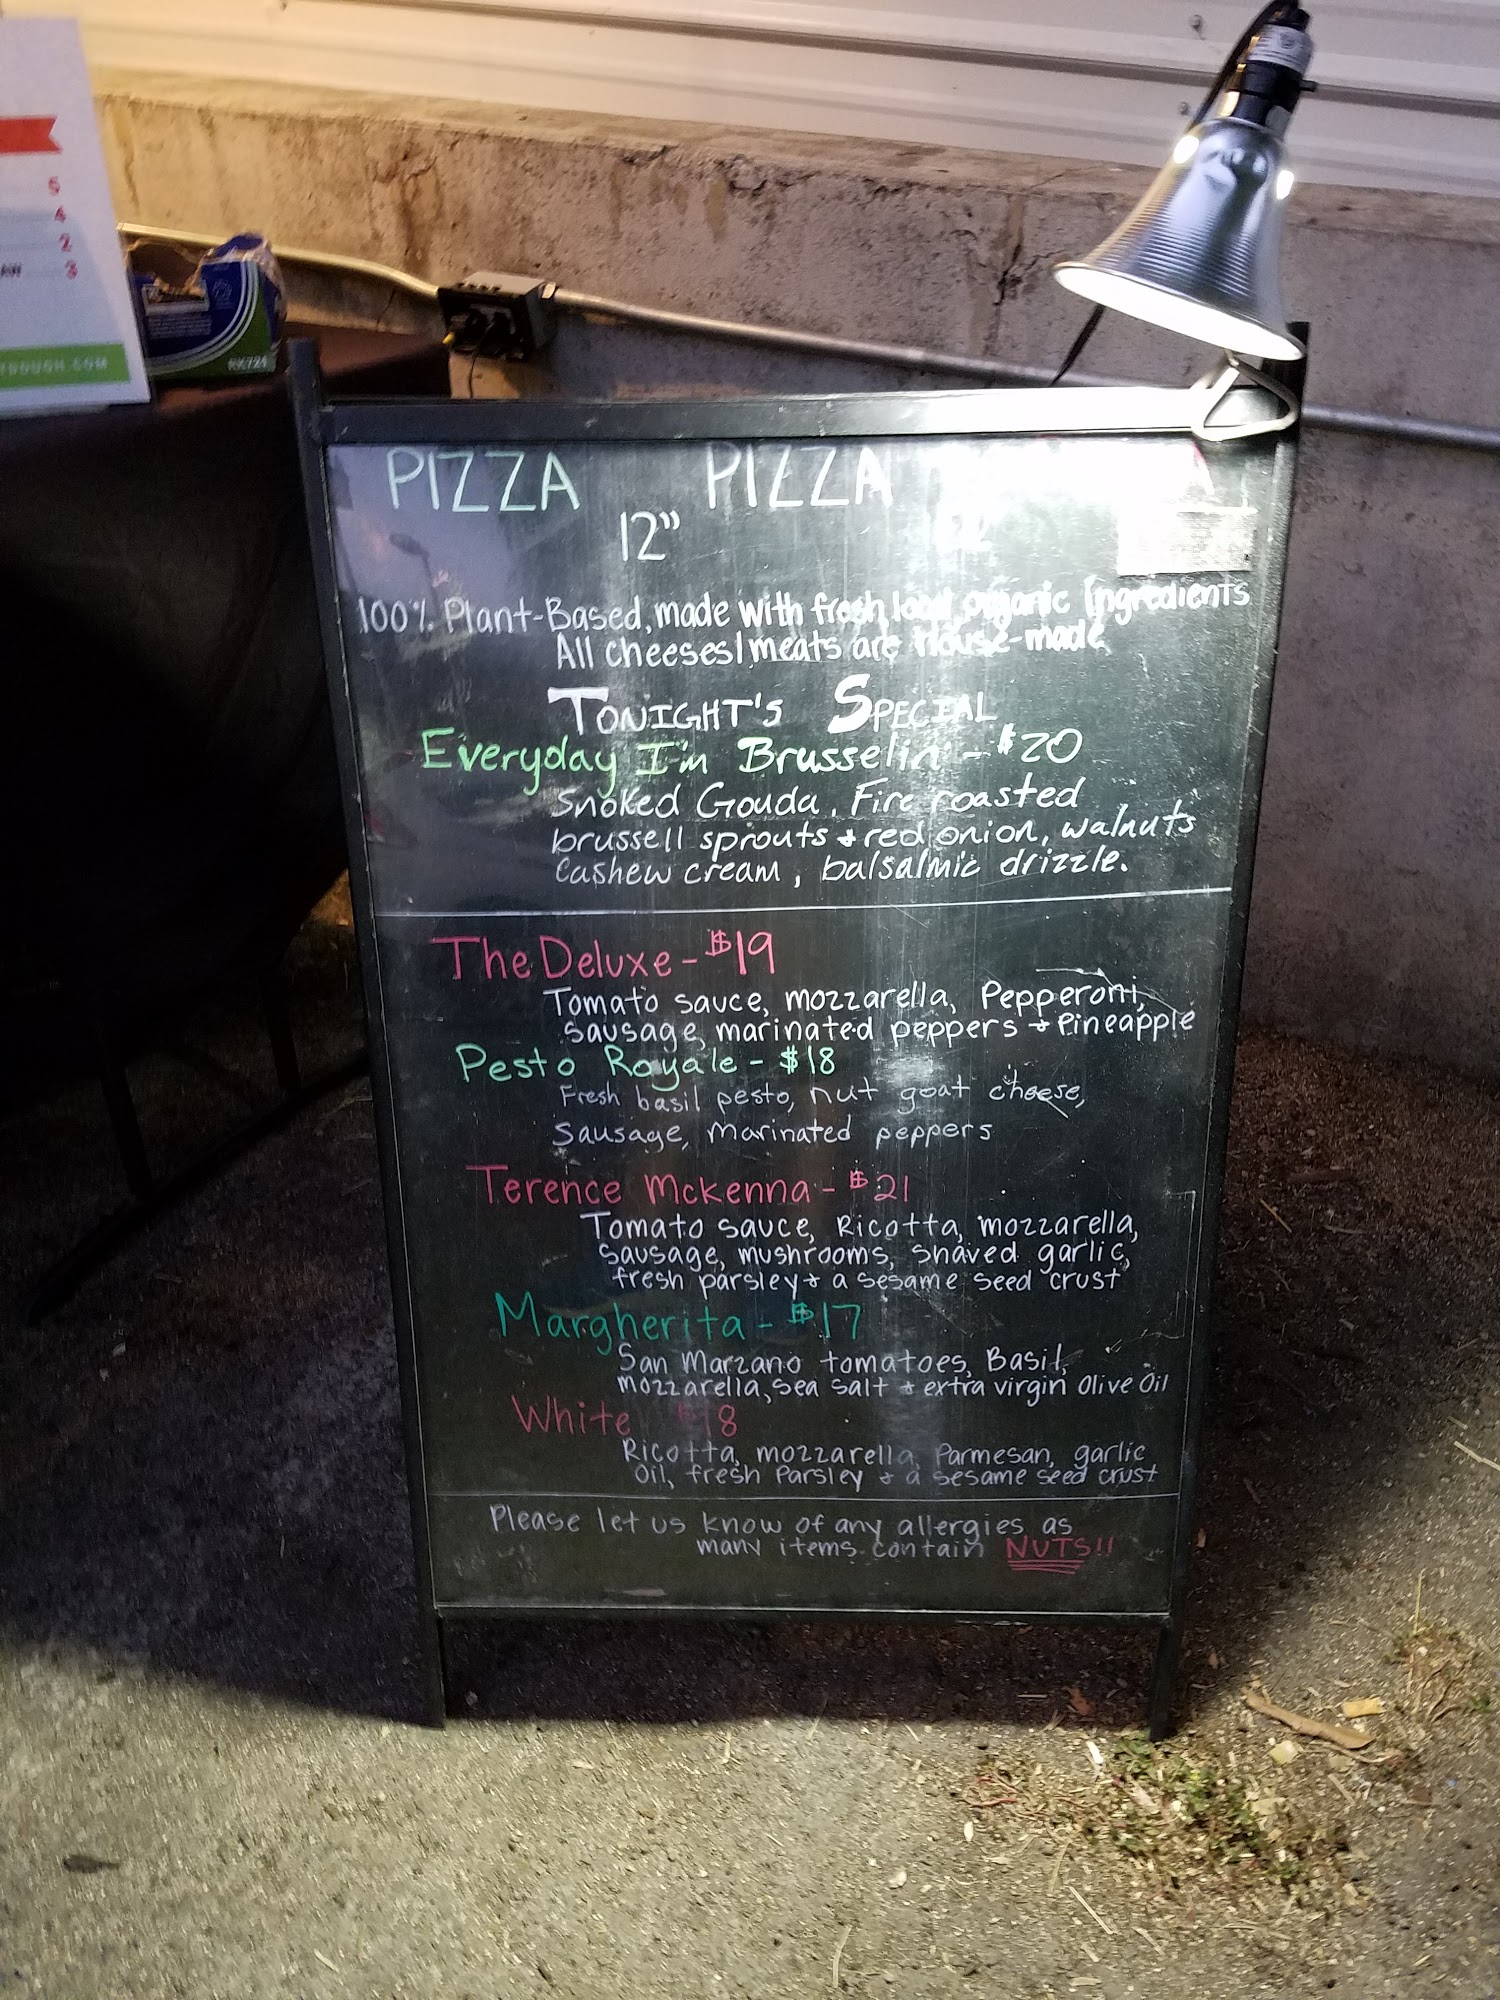 5
4
2
3
RK721
PIZZA PIZZA
12"
100% Plant-Based, made with fresh, local organic Ingredients
All cheeses/meats are house-made
TONIGHT'S SPECIAL
Everyday I'm Brusselin' - $20
Smoked Gouda, Fire roasted
brussell sprouts + red onion, walnuts
Cashew cream, balsalmic drizzle.
The Deluxe - $19
Tomato sauce, mozzarella, Pepperoni,
sausage, marinated peppers + Pineapple
Pesto Royale - $18
Fresh basil pesto, nut goat cheese,
Sausage, Marinated peppers
Terence Mckenna - $21
Tomato sauce, Ricotta, mozzarella,
sausage, mushrooms, shaved garlic,
fresh parsley + a sesame seed crust
Margherita - $17
San Marzano tomatoes, Basil,
mozzarella, sea salt + extra virgin Olive Oil
White $18
Ricotta, mozzarella, Parmesan, garlic
Oil, fresh Parsley + a sesame seed crust
Please let us know of any allergies as
many items contain NUTS!!